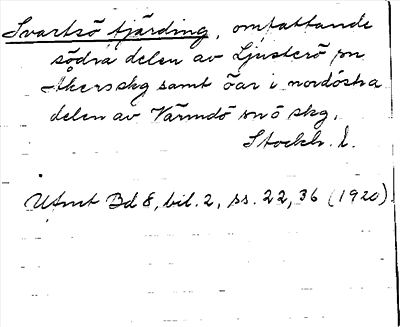 Svartsö fjärding, omfattande
södra delen av Ljusterö sn
Åkers skg samt öar i nordöstra
delen av Värmdö sn o skg,
Stockh. l.
Utmt Bd 8, bil. 2, ss. 22, 36 (1920).